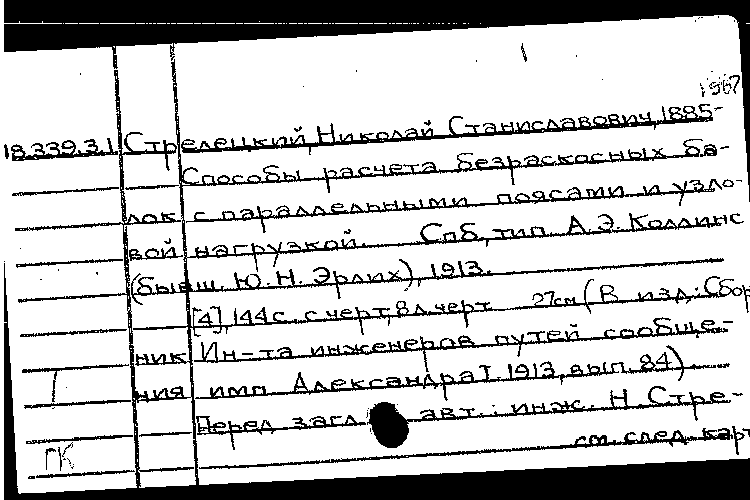 1967
18.339.3.1 Стрелецкий, Николай Станиславович, 1885-
Способы расчета безраскосных ба-
лок с параллельными поясами и узло-
вой нагрузкой. Спб, тип. А.Э. Коллинс
(бывш. Ю.Н. Эрлих), 1913.
[4], 144 с. с черт, 8 л. черт 27см (В изд.: Сбор
ник Ин-та инженеров путей сообще-
ния имп Александра I. 1913, вып. 84)
Перед загл. авт.: инж. Н. Стре-
ГК см. след. карт